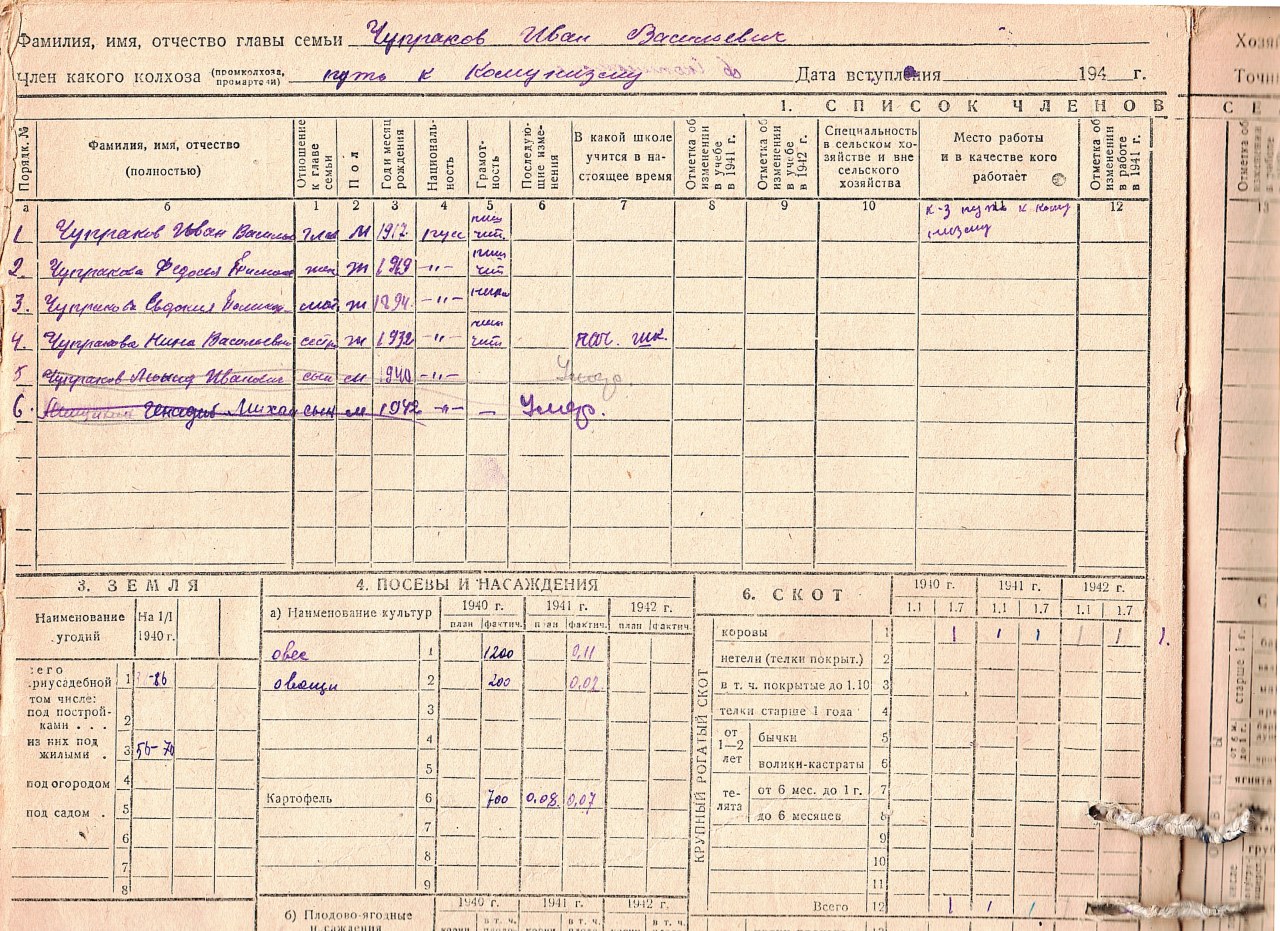 Фамилия, имя, отчество главы семьи Чупраков Иван Васильевич
Член какого колхоза (промколхоза, промартели) путь к Комунизму Дата вступления 194 г.
1. СПИСОК ЧЛЕНОВ
Порядк. № Фамилия, имя, отчество (полностью) Отношение к главе семьи Пол Год и месяц рождения Национальность Грамотность Последующие изменения В какой школе учится в настоящее время Отметка об изменении в учебе в 1941 г. Отметка об изменении в учебе в 1942 г. Специальность в сельском хозяйстве и вне сельского хозяйства Место работы и в качестве кого работает Отметка об изменении в работе в 1941 г.
а б 1 2 3 4 5 6 7 8 9 10 12
1 Чупраков Иван Василь глав М 1912 русс пиш чит. к-з путь к кому низму
2. Чупракова Федосья жен ж 1919 -"- пиш чит
3. Чупракова Евдокия мат ж 1894 -"-
4. Чупракова Нина Васильевн сестр ж 1932 -"- пиш чит. нач. шк.
5 Чупраков Леонид Иванович сын м 1940 -"- Умер.
6. Генадий Михаил сын м 1942 -"- – Умер.
3. ЗЕМЛЯ
Наименование угодий На 1/I 1940 г.
всего приусадебной 1 -86
том числе: под постройками . . . 2
из них под жилыми . 3 56-70
под огородом 4
под садом . 5
6
7
8
4. ПОСЕВЫ И НАСАЖДЕНИЯ
а) Наименование культур 1940 г. 1941 г. 1942 г.
план фактич. план фактич. план фактич.
овес 1 1200 0,11
овощи 2 200 0,02
3
4
5
Картофель 6 700 0,08 0,07
7
8
9
1940 г. 1941 г. 1942 г.
б) Плодово-ягодные насаждения
в т. ч. в т. ч. в т. ч.
6. СКОТ 1940 г. 1941 г. 1942 г.
1.1 1.7 1.1 1.7 1.1 1.7
КРУПНЫЙ РОГАТЫЙ СКОТ
коровы 1 1 1 1 1 1 1.
нетели (телки покрыт.) 2
в т. ч. покрытые до 1.10 3
телки старше 1 года 4
от 1—2 лет бычки 5
волики-кастраты 6
телята от 6 мес. до 1 г. 7
до 6 месяцев 8
9
10
11
Всего 12 1 1 1 1
13